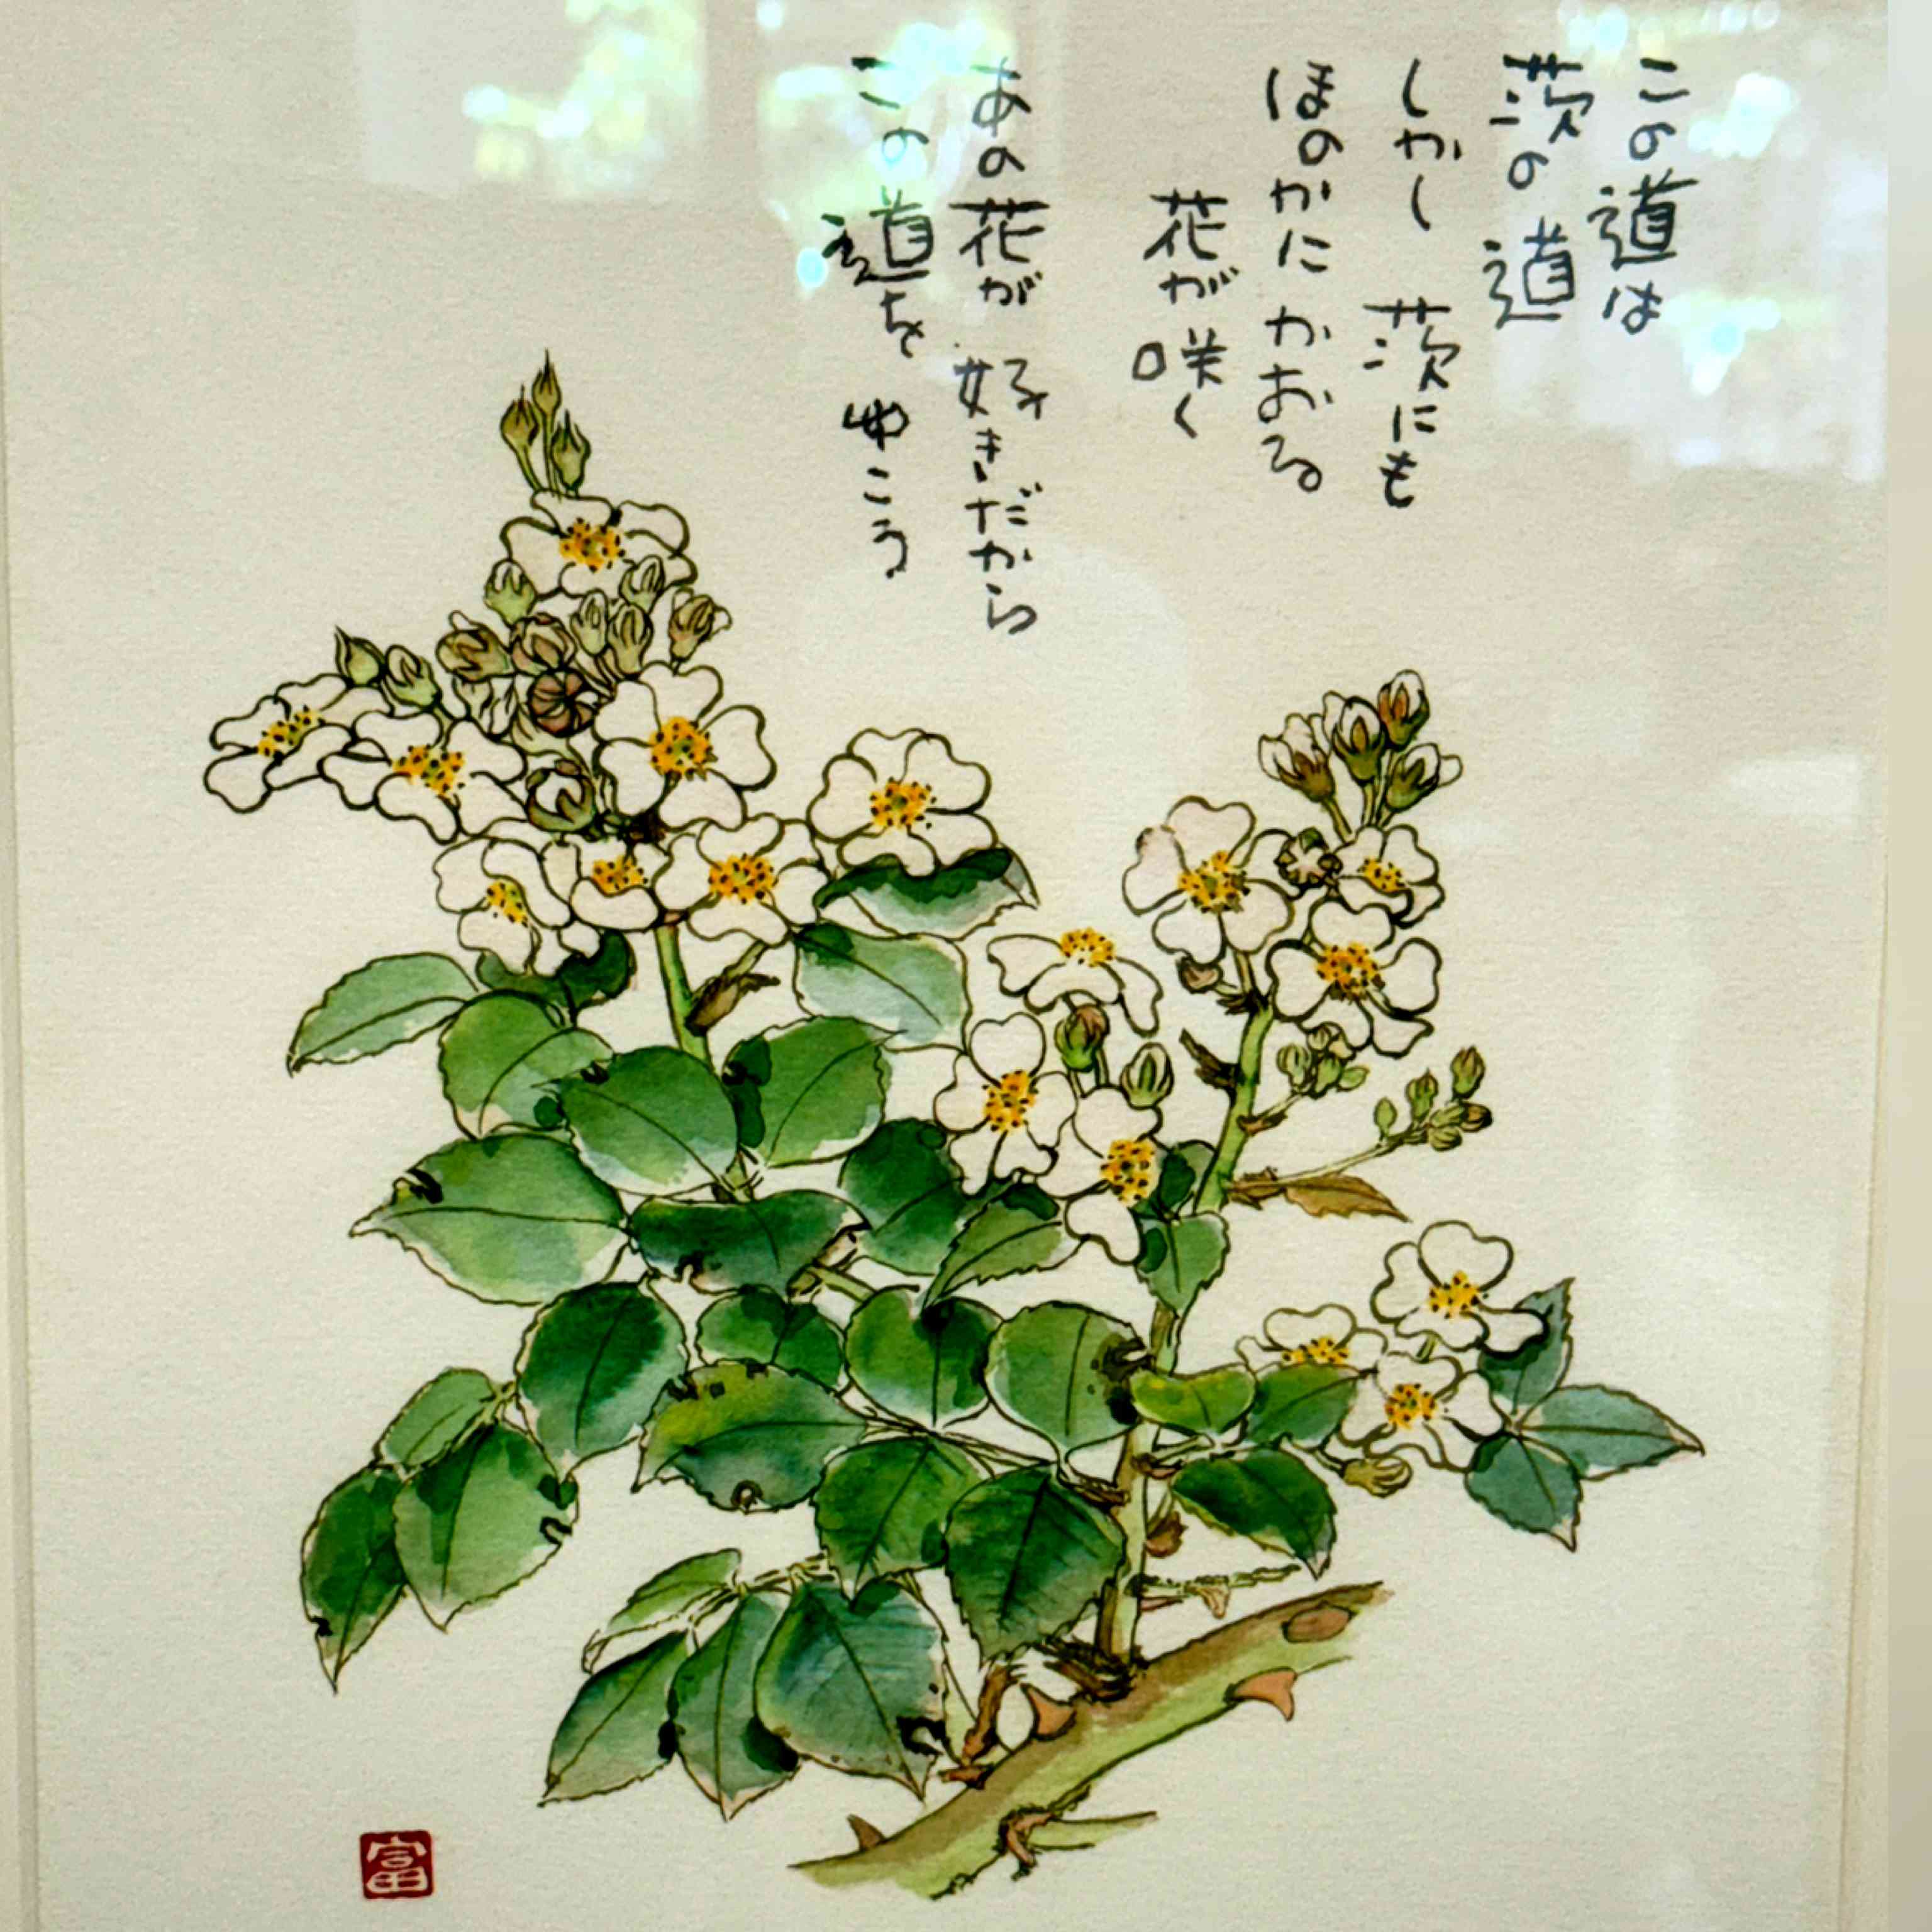 この道は
茨の道
しかし 茨にも
ほのかにかおる
花が咲く
あの花が 好きだから
この道を ゆこう
富